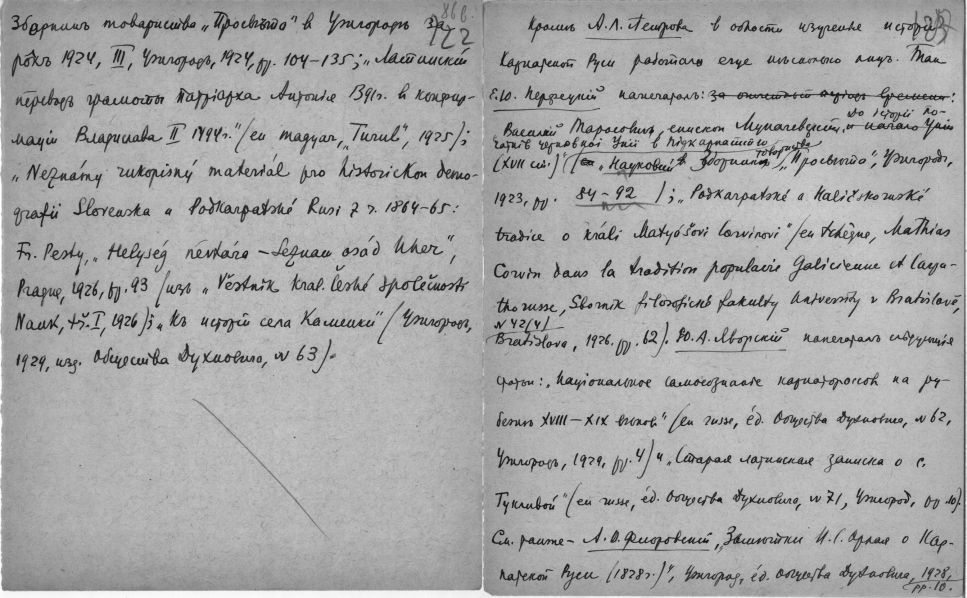 86 об.
122
Зборникъ товариства „Просвѣта" в Ужгородѣ за
рокъ 1924, III, Ужгородъ, 1924, pp. 104–135; „Латинскій
переводъ грамоты патріарха Антонія 1391г. в конфир-
маціи Владислава II 1494г." (en magyar, „Turul", 1925);
„Neznámý rukopisný materiál pro historickou demo-
grafii Slovenska a Podkarpatské Rusi z r. 1864–65:
Fr. Pesty, „Helység névtára – Seznam osád Uher",
Prague, 1926, pp. 93 (изъ „Věstník Král. České Společnosti
Nauk, tř. I, 1926); „Къ исторіи села Каменки" (Ужгородъ,
1929, изд. Общества Духновича, N 63).
Кромѣ А.Л. Петрова в области изученія исторіи
Карпатской Руси работало еще нѣсколько лицъ. Так
Е.Ю. Перфецкій напечаталъ: за отчетный періодъ времени:
Василій Тарасовичъ, епископ Мукачевскій, и начало Уніи
До исторіи по-
чатків церковної Унії в Підкарпаттю
(XVII ст.) („Науковый Зборникъ товариства „Просвѣта", Ужгородъ,
1923, pp. 84–92); „Podkarpatské a Haličskoruské
tradice o králi Matyášovi Corvinovi" (en tchèque, Mathias
Corvin dans la tradition populaire Galicienne et Carpa-
thorusse, Sborník filosofické fakulty University v Bratislavě,
N 42(4)
Bratislava, 1926. pp. 62). Ю.А. Яворскій напечаталъ слѣдующія
статьи: „Національное самосознаніе карпатороссов на ру-
бежѣ XVIII–XIX вѣков" (en russe, éd. Общества Духновича, N 62,
Ужгородъ, 1929, pp. 4) и „Старая латинская записка о с.
Тухливой" (en russe, éd. Общества Духновича, N 71, Ужгород, pp. 10).
См. также – А.Ѳ. Флоровский, „Замѣтки И.С. Орлая о Кар-
патской Руси (1828г.)", Ужгород, éd. Общества Духновича, 1928,
pp. 10.